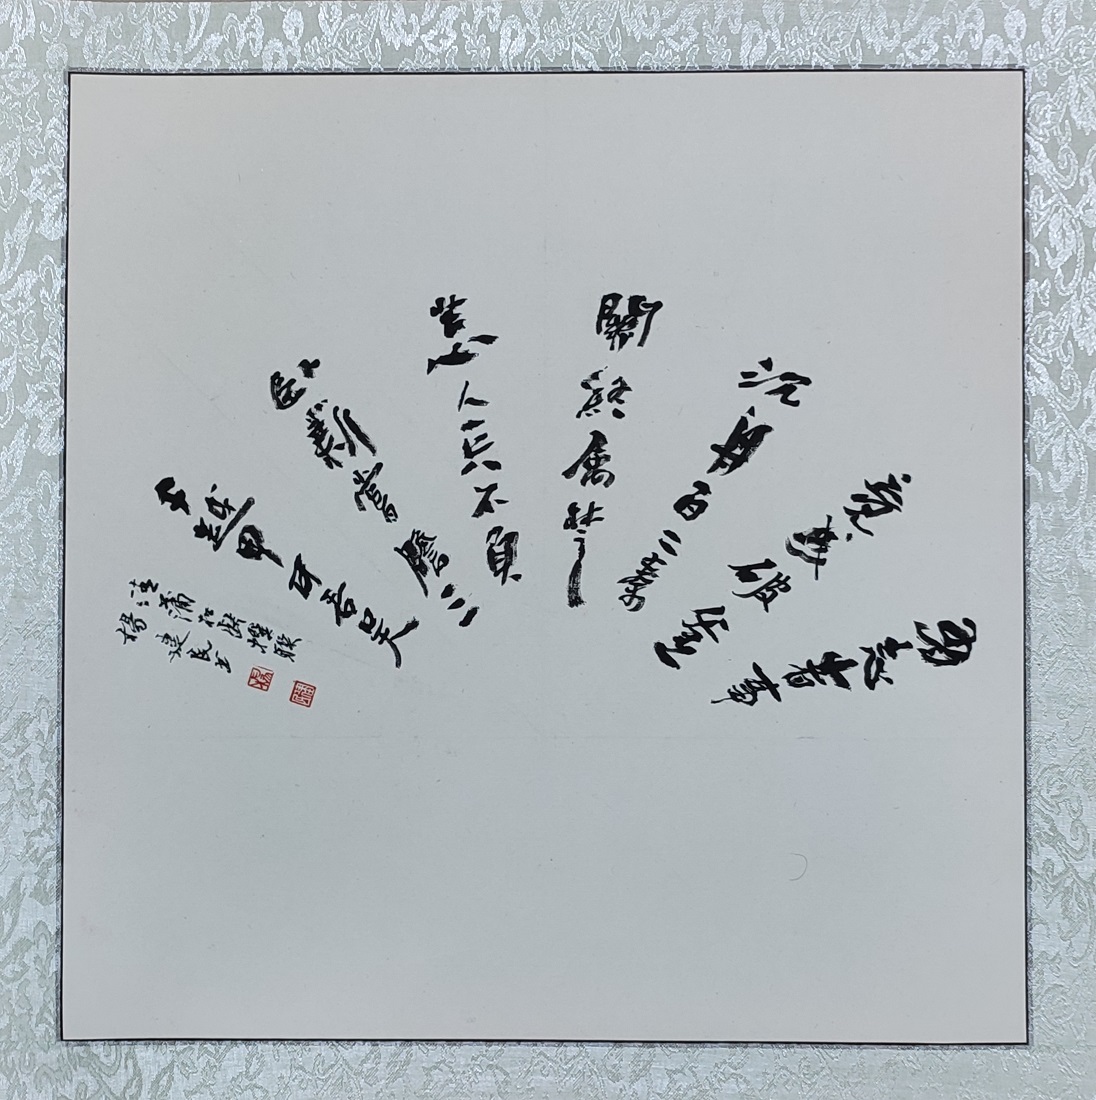 有志者事
竟成破釜
沉舟百二秦
關終屬楚
苦心人天不負
臥薪嘗膽三
千越甲可吞吳
清蒲松齡撰聯
楊建民书